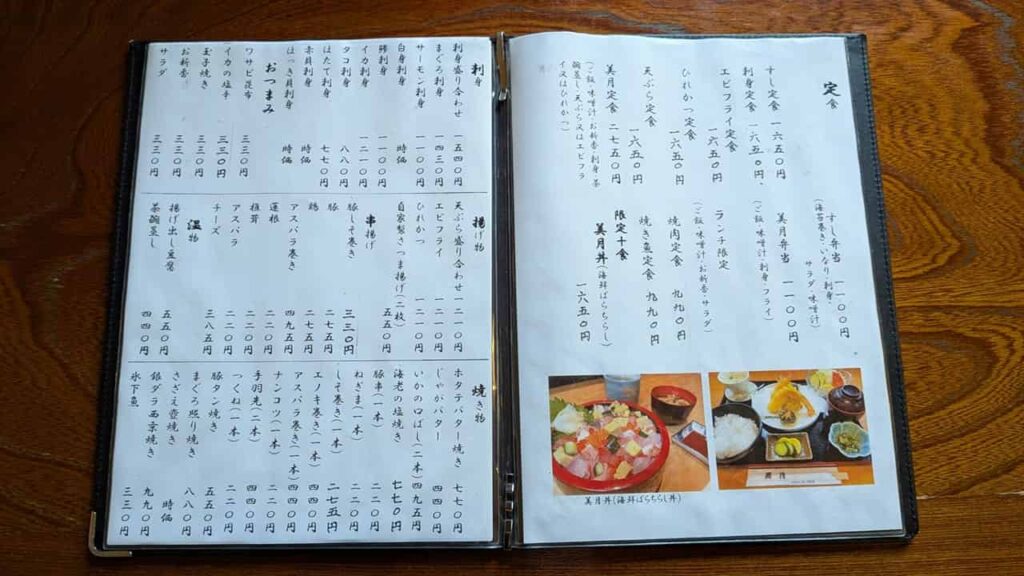 定食
すし定食 一六五〇円
刺身定食 一六五〇円
エビフライ定食 一六五〇円
ひれかつ定食 一六五〇円
天ぷら定食 一六五〇円
美月定食 二七五〇円
(ご飯・味噌汁・お新香・刺身・茶
碗蒸し・天ぷら又はエビフラ
イ又はひれかつ)
すし弁当 一一〇〇円
(海苔巻き・いなり・刺身・
サラダ・味噌汁)
美月弁当 一一〇〇円
(ご飯・味噌汁・刺身・フライ)
ランチ限定
(ご飯・味噌汁・お新香・サラダ)
焼肉定食 九九〇円
焼き魚定食 九九〇円
限定十食
美月丼(海鮮ばらちらし)
一六五〇円
美月丼(海鮮ばらちらし丼)
刺身
刺身盛り合わせ 一五四〇円
まぐろ刺身 一四三〇円
サーモン刺身 一一〇〇円
白身刺身 時価
鯵刺身 一一〇〇円
イカ刺身 一二一〇円
タコ刺身 八八〇円
ほたて刺身 七七〇円
赤貝刺身 時価
ほっき貝刺身 時価
おつまみ
ワサビ昆布 三三〇円
イカの塩辛 三三〇円
玉子焼き 三三〇円
お新香 三三〇円
サラダ 三三〇円
揚げ物
天ぷら盛り合わせ 一二一〇円
エビフライ 一二一〇円
ひれかつ 一二一〇円
自家製さつま揚げ(二枚) 五五〇円
串揚げ
豚しそ巻き 三三〇円
豚 二七五円
鶏 二七五円
アスパラ巻き 四九五円
蓮根 二二〇円
椎茸 二二〇円
アスパラ 二二〇円
チーズ 三八五円
温物
揚げ出し豆腐 五五〇円
茶碗蒸し 四四〇円
焼き物
ホタテバター焼き 七七〇円
じゃがバター 四四〇円
いかの口ばし(二本) 四九五円
海老の塩焼き 七七〇円
豚串(一本) 二二〇円
ねぎま(一本) 二二〇円
しそ巻き(一本) 二七五円
エノキ巻き(一本) 四四〇円
アスパラ巻き(一本) 四四〇円
ナンコツ(一本) 二二〇円
手羽先(二本) 四四〇円
つくね(一本) 二二〇円
豚タン焼き 五五〇円
まぐろ照り焼き 八八〇円
さざえ壺焼き 時価
銀ダラ西京焼き 九九〇円
氷下魚 三三〇円